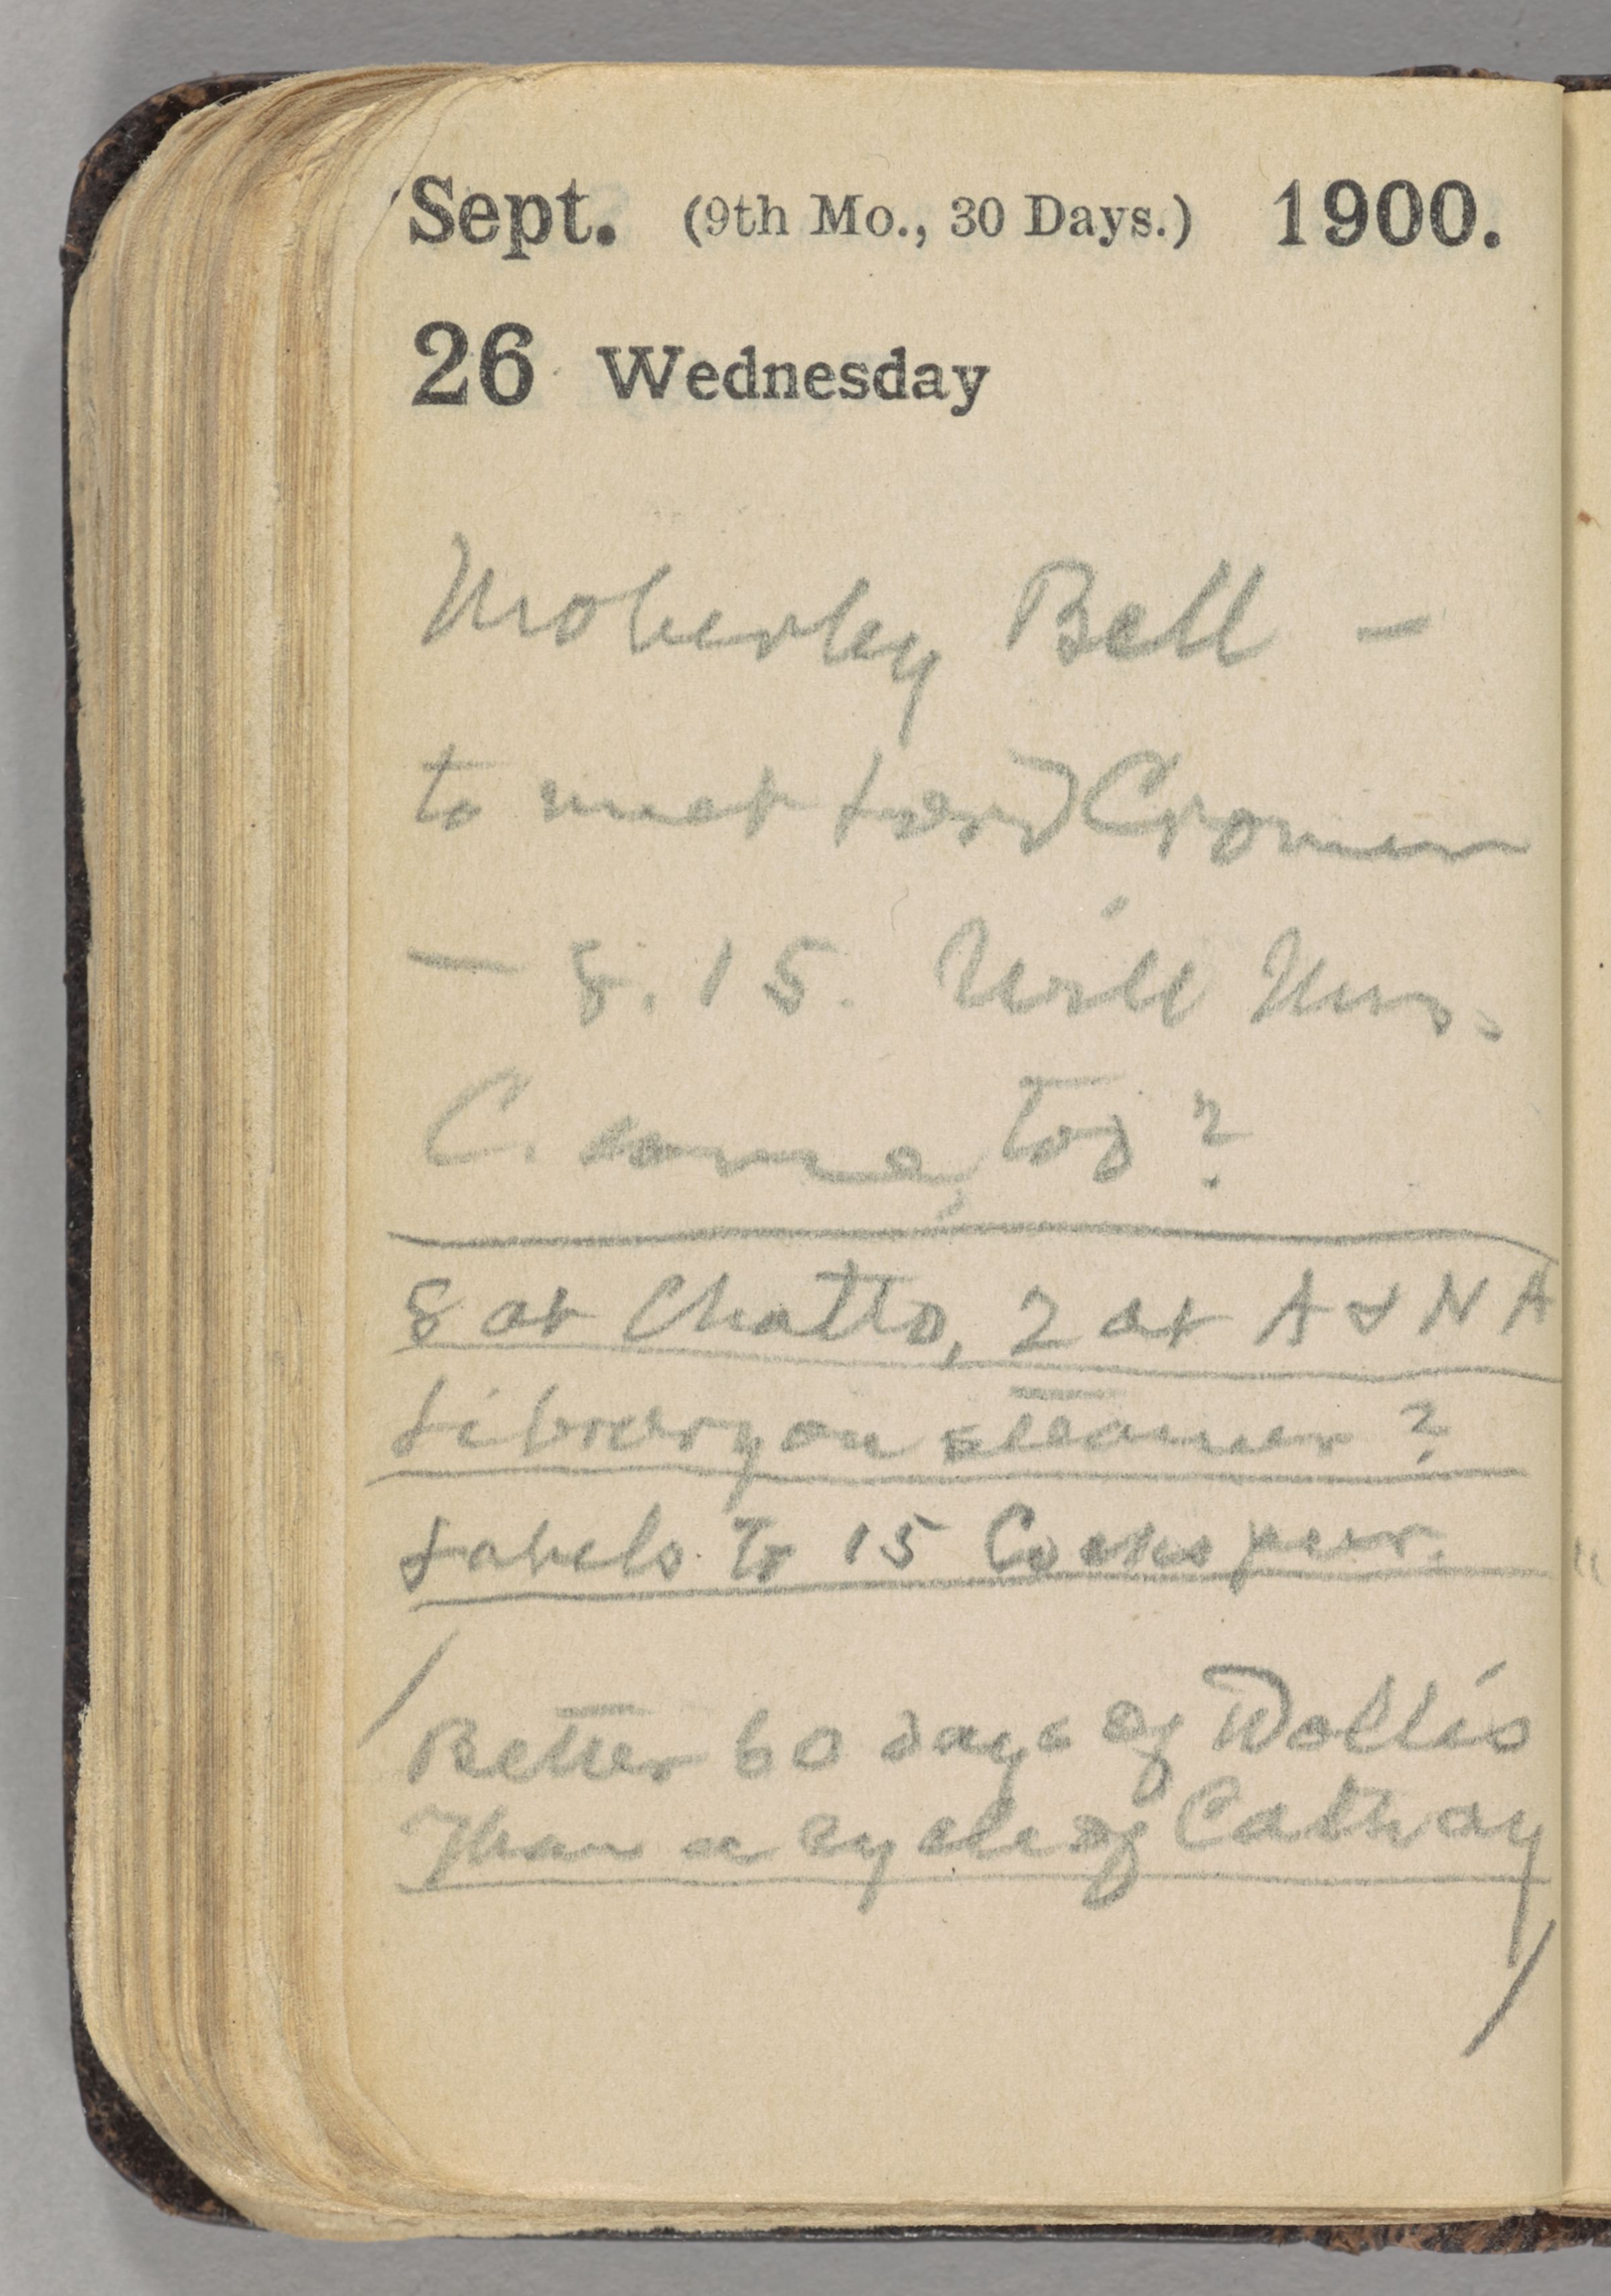 Sept. (9th Mo., 30 Days.) 1900.
26 Wednesday
Moberley Bell —
to meet Lord Cromer
— 8.15. Will Mrs.
C. come, too?
8 at Chatto, 2 at A & N A
Library on steamer?
Labels to 15 Cockspur.
Better 60 days of Dollis
Than a cycle of Cathay